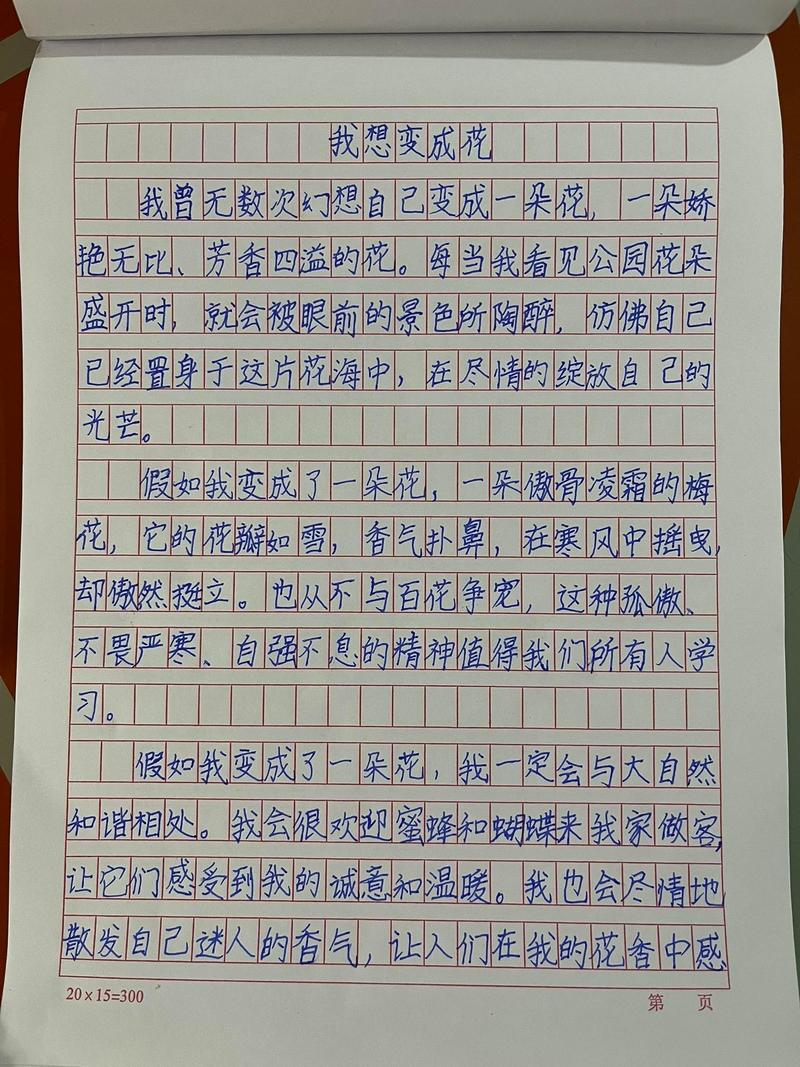 我想变成花
我曾无数次幻想自己变成一朵花，一朵娇
艳无比、芳香四溢的花。每当我看见公园花朵
盛开时，就会被眼前的景色所陶醉，仿佛自己
已经置身于这片花海中，在尽情的绽放自己的
光芒。
假如我变成了一朵花，一朵傲骨凌霜的梅
花，它的花瓣如雪，香气扑鼻，在寒风中摇曳，
却傲然挺立。也从不与百花争宠，这种孤傲、
不畏严寒、自强不息的精神值得我们所有人学
习。
假如我变成了一朵花，我一定会与大自然
和谐相处。我会很欢迎蜜蜂和蝴蝶来我家做客，
让它们感受到我的诚意和温暖。我也会尽情地
散发自己迷人的香气，让人们在我的花香中感
20×15=300
第 页